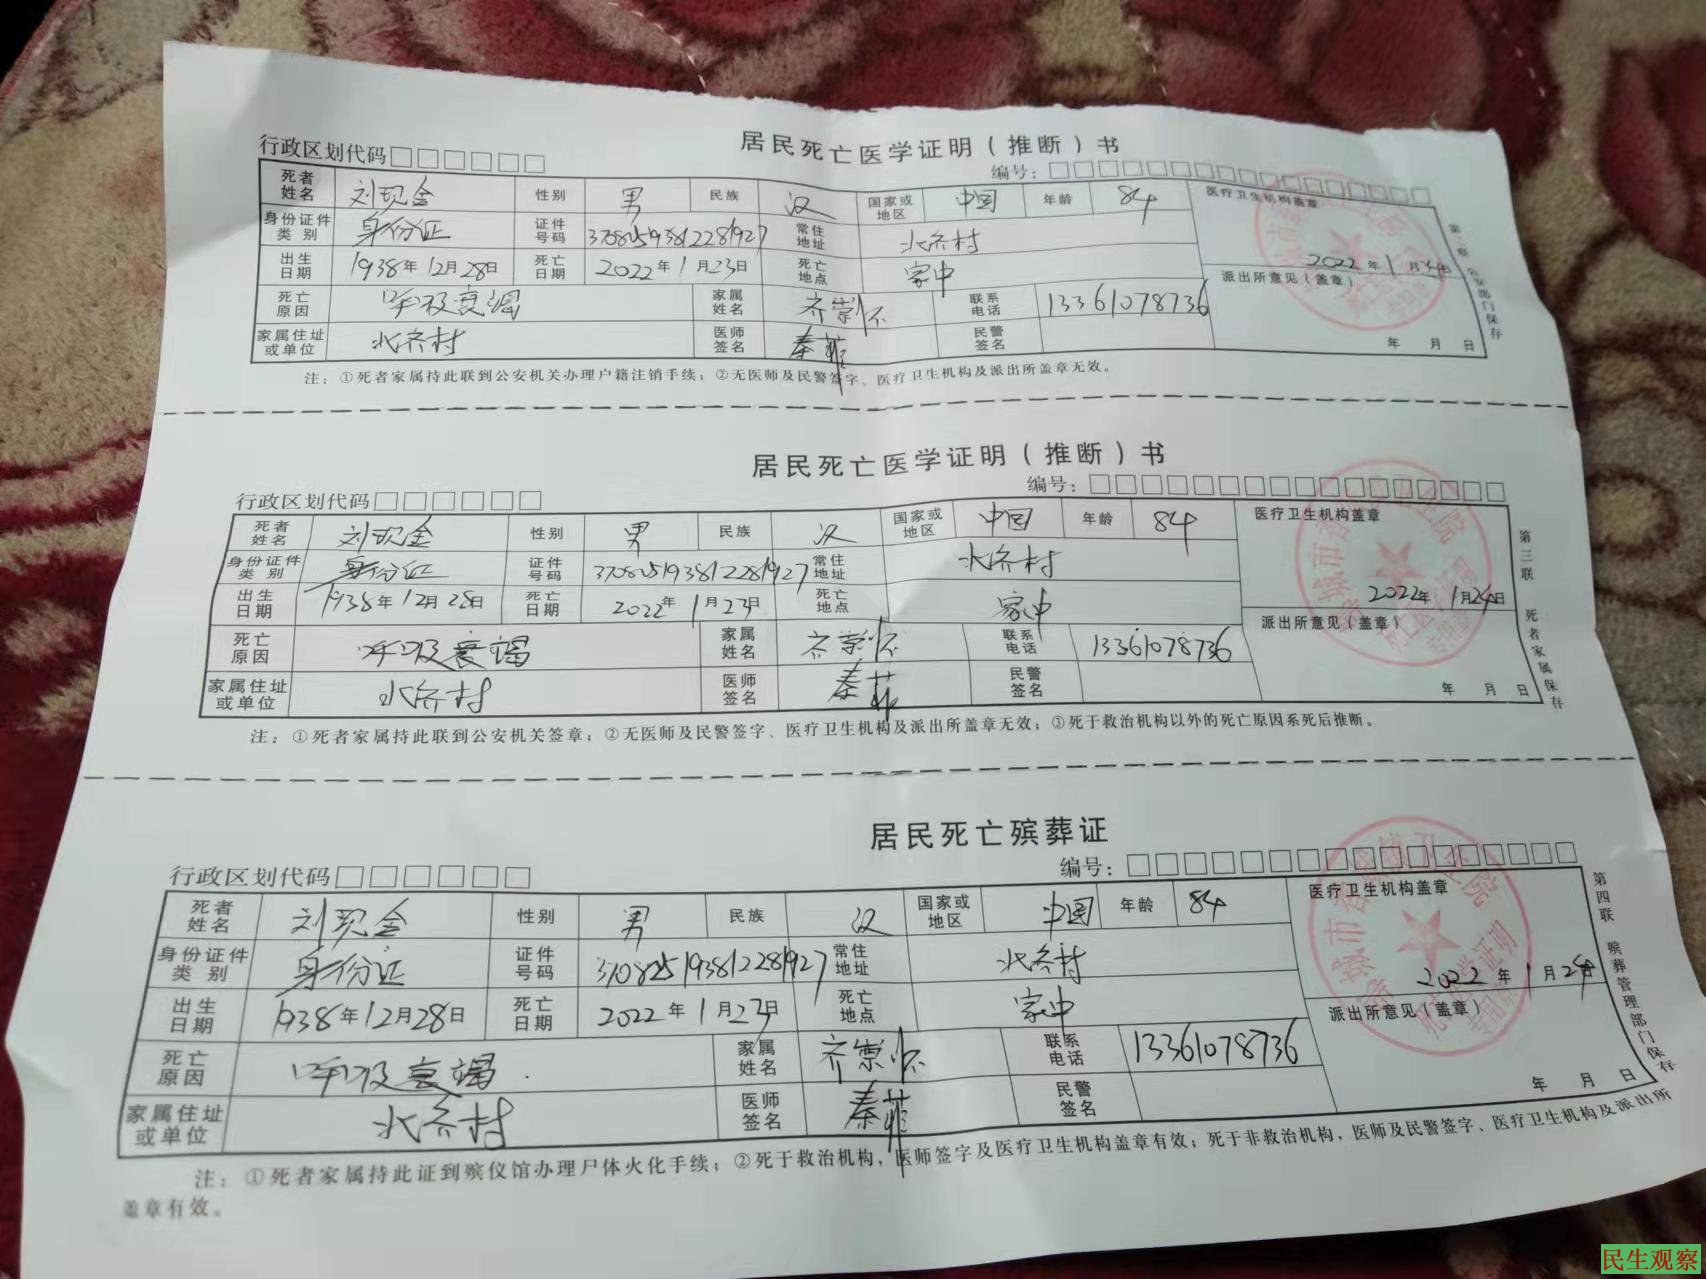 居民死亡医学证明（推断）书
行政区划代码□□□□□□ 编号：□□□□□□□□□□□□□□□□□
死者姓名 刘现金 性别 男 民族 汉 国家或地区 中国 年龄 84 医疗卫生机构盖章
身份证件类别 身份证 证件号码 370825193812281927 常住地址 北齐村
出生日期 1938年12月28日 死亡日期 2022年1月23日 死亡地点 家中 2022年1月24日
派出所意见（盖章）
死亡原因 呼吸衰竭 家属姓名 齐崇怀 联系电话 13361078736
家属住址或单位 北齐村 医师签名 秦菲 民警签名 年 月 日
公安部门保存
注：①死者家属持此联到公安机关办理户籍注销手续；②无医师及民警签字、医疗卫生机构及派出所盖章无效。
居民死亡医学证明（推断）书
行政区划代码□□□□□□ 编号：□□□□□□□□□□□□□□□□□
死者姓名 刘现金 性别 男 民族 汉 国家或地区 中国 年龄 84 医疗卫生机构盖章
身份证件类别 身份证 证件号码 370825193812281927 常住地址 北齐村
出生日期 1938年12月28日 死亡日期 2022年1月23日 死亡地点 家中 2022年1月24日
派出所意见（盖章）
死亡原因 呼吸衰竭 家属姓名 齐崇怀 联系电话 13361078736
家属住址或单位 北齐村 医师签名 秦菲 民警签名 年 月 日
第三联 死者家属保存
注：①死者家属持此联到公安机关签章；②无医师及民警签字、医疗卫生机构及派出所盖章无效；③死于救治机构以外的死亡原因系死后推断。
居民死亡殡葬证
行政区划代码□□□□□□ 编号：□□□□□□□□□□□□□□□□
死者姓名 刘现金 性别 男 民族 汉 国家或地区 中国 年龄 84 医疗卫生机构盖章
身份证件类别 身份证 证件号码 370825193812281927 常住地址 北齐村
出生日期 1938年12月28日 死亡日期 2022年1月23日 死亡地点 家中 2022年1月24日
派出所意见（盖章）
死亡原因 呼吸衰竭 家属姓名 齐崇怀 联系电话 13361078736
家属住址或单位 北齐村 医师签名 秦菲 民警签名 年 月 日
第四联 殡葬管理部门保存
注：①死者家属持此证到殡仪馆办理尸体火化手续；②死于救治机构，医师签字及医疗卫生机构盖章有效；死于非救治机构，医师及民警签字、医疗卫生机构及派出所
盖章有效。
民生观察